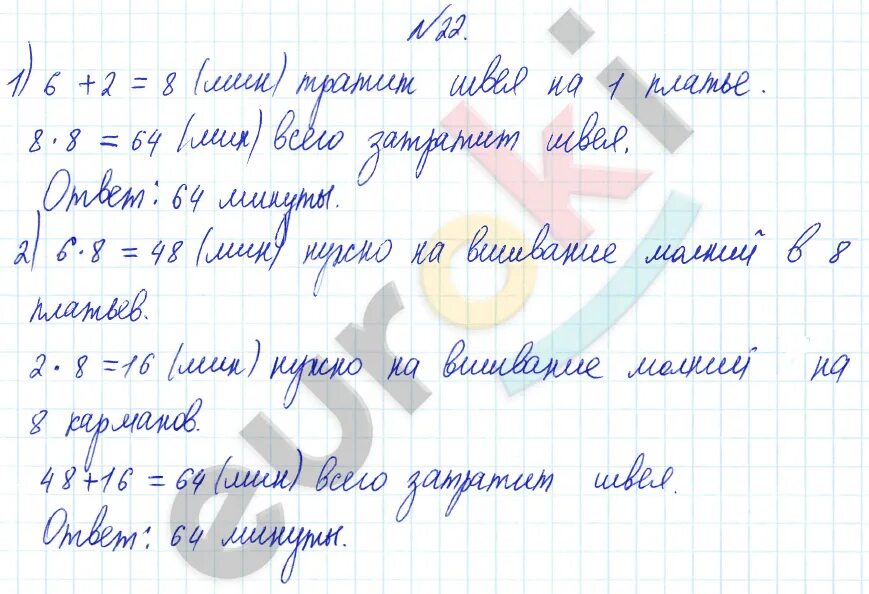 №22.
1) 6 + 2 = 8 (мин) тратит швея на 1 платье.
8 · 8 = 64 (мин) всего затратит швея.
Ответ: 64 минуты.
2) 6 · 8 = 48 (мин) нужно на вшивание молний в 8
платьев.
2 · 8 = 16 (мин) нужно на вшивание молний на
8 карманов.
48 + 16 = 64 (мин) всего затратит швея.
Ответ: 64 минуты.
euroki